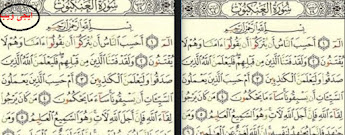 سُورَةُ الْعَنكَبُوتِ
بِسْمِ اللَّهِ الرَّحْمَٰنِ الرَّحِيمِ
الم ١ أَحَسِبَ النَّاسُ أَن يُتْرَكُوا أَن يَقُولُوا ءَامَنَّا وَهُمْ لَا
يُفْتَنُونَ ٢ وَلَقَدْ فَتَنَّا الَّذِينَ مِن قَبْلِهِمْ فَلَيَعْلَمَنَّ اللَّهُ الَّذِينَ
صَدَقُوا وَلَيَعْلَمَنَّ الْكَٰذِبِينَ ٣ أَمْ حَسِبَ الَّذِينَ يَعْمَلُونَ
السَّيِّئَاتِ أَن يَسْبِقُونَا سَاءَ مَا يَحْكُمُونَ ٤ مَن كَانَ يَرْجُوا
لِقَاءَ اللَّهِ فَإِنَّ أَجَلَ اللَّهِ لَآتٍ وَهُوَ السَّمِيعُ الْعَلِيمُ
سُورَةُ الْعَنكَبُوتِ
بِسْمِ اللَّهِ الرَّحْمَٰنِ الرَّحِيمِ
الم ١ أَحَسِبَ النَّاسُ أَن يُتْرَكُوا أَن يَقُولُوا ءَامَنَّا وَهُمْ لَا
يُفْتَنُونَ ٢ وَلَقَدْ فَتَنَّا الَّذِينَ مِن قَبْلِهِمْ فَلَيَعْلَمَنَّ اللَّهُ الَّذِينَ
صَدَقُوا وَلَيَعْلَمَنَّ الْكَٰذِبِينَ ٣ أَمْ حَسِبَ الَّذِينَ يَعْمَلُونَ
السَّيِّئَاتِ أَن يَسْبِقُونَا سَاءَ مَا يَحْكُمُونَ ٤ مَن كَانَ يَرْجُوا
لِقَاءَ اللَّهِ فَإِنَّ أَجَلَ اللَّهِ لَآتٍ وَهُوَ السَّمِيعُ الْعَلِيمُ